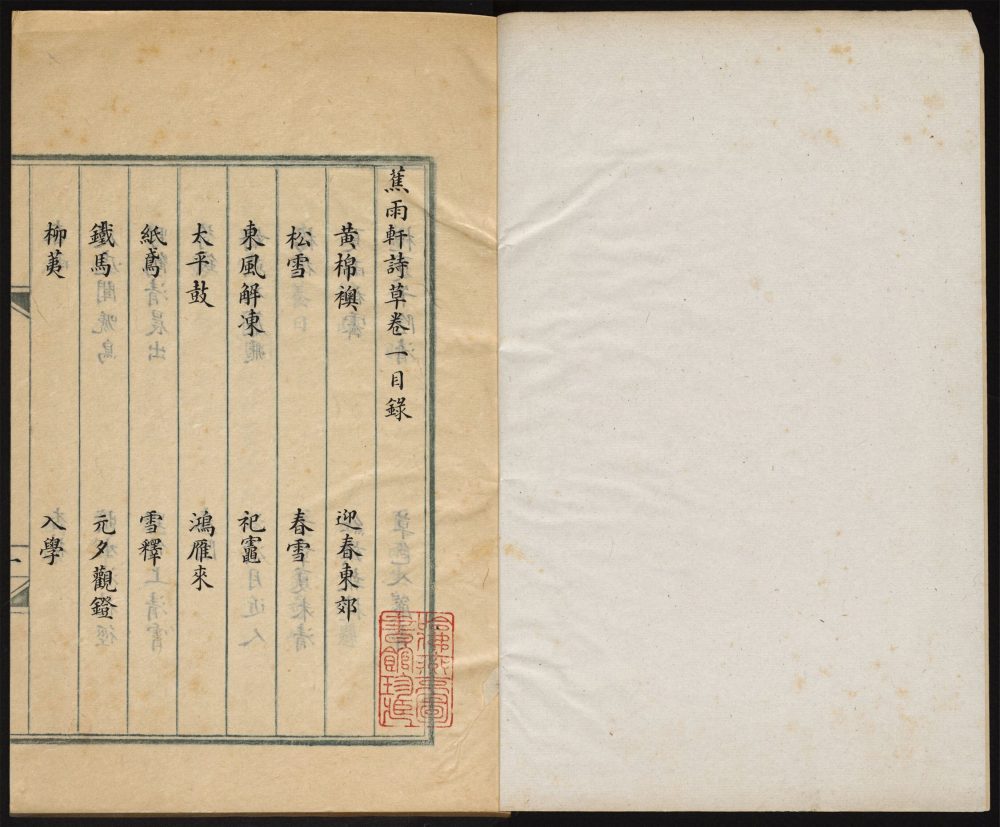 蕉雨軒詩草卷一目錄
黄棉襖 迎春東郊
松雪 春雪
東風解凍 祀竈
太平鼓 鴻雁來
紙鳶 雪釋
鐵馬 元夕觀鐙
柳荑 入學
一
哈佛燕京圖書館珍藏